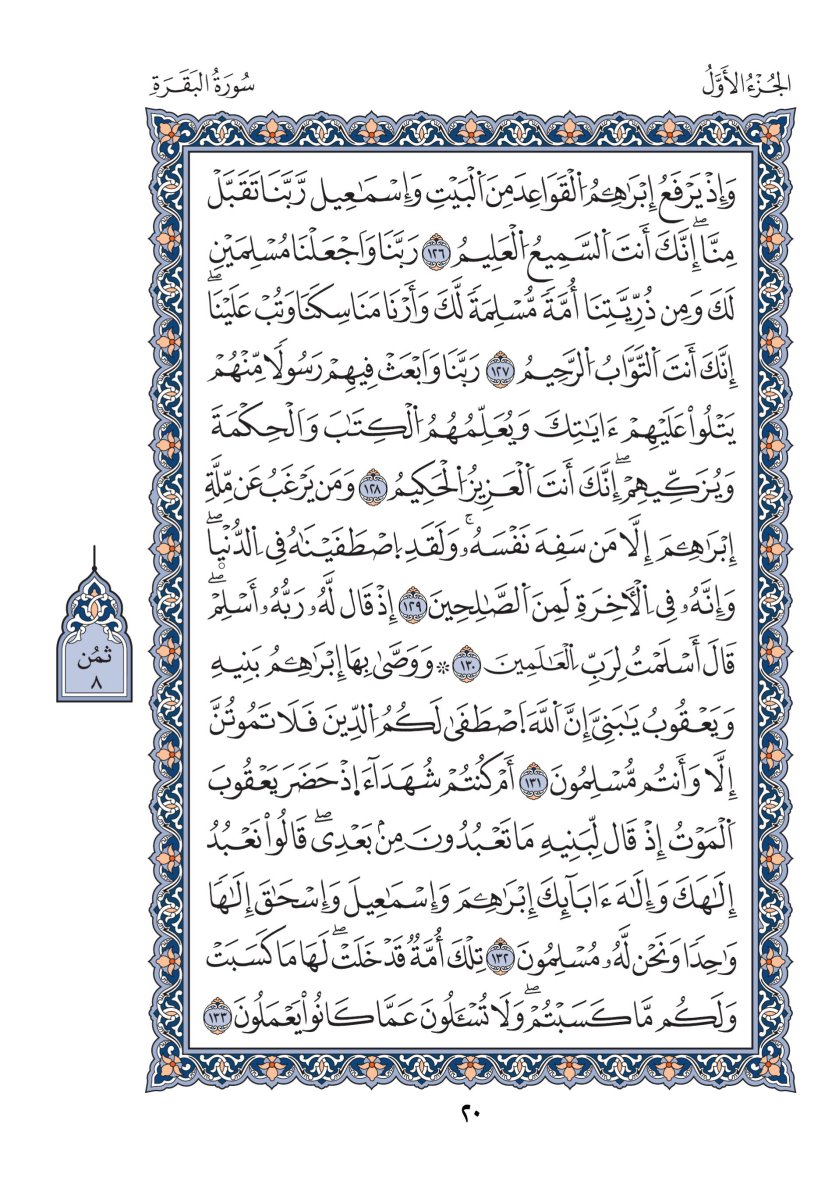 الجُزْءُ الأَوَّلُ
سُورَةُ البَقَرَةِ
وَإِذْ يَرْفَعُ إِبْرَٰهِـۧمُ اُلْقَوَاعِدَ مِنَ اَلْبَيْتِ وَإِسْمَٰعِيل رَّبَّنَا تَقَبَّلْ
مِنَّاۖ إِنَّكَ أَنتَ اَلسَّمِيعُ اُلْعَلِيمُ ١٢٦ رَبَّنَا وَاَجْعَلْنَا مُسْلِمَيْنِ
لَكَ وَمِن ذُرِّيَّتِنَا أُمَّةٗ مُّسْلِمَةٗ لَّكَ وَأَرْنَا مَنَاسِكَنَا وَتُبْ عَلَيْنَاۖ
إِنَّكَ أَنتَ اَلتَّوَّابُ اُلرَّحِيمُ ١٢٧ رَبَّنَا وَاَبْعَثْ فِيهِمْ رَسُولٗا مِّنْهُمْ
يَتْلُواْ عَلَيْهِمْ ءَايَٰتِكَ وَيُعَلِّمُهُمُ اُلْكِتَٰبَ وَاَلْحِكْمَةَ
وَيُزَكِّيهِمْۖ إِنَّكَ أَنتَ اَلْعَزِيزُ اُلْحَكِيمُ ١٢٨ وَمَن يَرْغَبُ عَن مِّلَّةِ
إِبْرَٰهِـۧمَ إِلَّا مَن سَفِهَ نَفْسَهُۥۚ وَلَقَدِ اِصْطَفَيْنَٰهُ فِي اِلدُّنْيَاۖ
وَإِنَّهُۥ فِي اِلْأٓخِرَةِ لَمِنَ اَلصَّٰلِحِينَ ١٢٩ إِذْ قَال لَّهُۥ رَبُّهُۥ أَسْلِمْۖ
قَالَ أَسْلَمْتُ لِرَبِّ اِلْعَٰلَمِينَ ١٣٠ ۞ وَوَصَّىٰ بِهَا إِبْرَٰهِـۧمُ بَنِيهِ
وَيَعْقُوبُ يَٰبَنِيَّ إِنَّ اَللَّهَ اَصْطَفَىٰ لَكُمُ اُلدِّينَ فَلَا تَمُوتُنَّ
إِلَّا وَأَنتُم مُّسْلِمُونَ ١٣١ أَمْ كُنتُمْ شُهَدَآءَ اِ۬ذْ حَضَرَ يَعْقُوبَ
اَلْمَوْتُ إِذْ قَال لِّبَنِيهِ مَا تَعْبُدُونَ مِنۢ بَعْدِيۖ قَالُواْ نَعْبُدُ
إِلَٰهَكَ وَإِلَٰهَ ءَابَآئِكَ إِبْرَٰهِـۧمَ وَإِسْمَٰعِيلَ وَإِسْحَٰقَ إِلَٰهٗا
وَٰحِدٗا وَنَحْن لَّهُۥ مُسْلِمُونَ ١٣٢ تِلْكَ أُمَّةٞ قَدْ خَلَتْۖ لَهَا مَا كَسَبَتْ
وَلَكُم مَّا كَسَبْتُمْۖ وَلَا تُسْـَٔلُونَ عَمَّا كَانُواْ يَعْمَلُونَ ١٣٣
ثُمُن
٨
٢٠